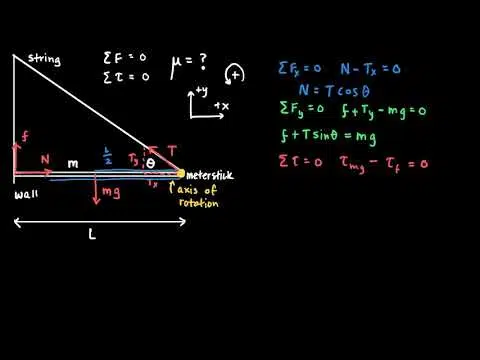 string
ΣF = 0
Στ = 0
μ = ?
+
+y
+x
f
N
m
L/2
T_y
θ
T
T_x
meterstick
wall
mg
axis of
rotation
L
ΣF_x = 0 N - T_x = 0
N = T cos θ
ΣF_y = 0 f + T_y - mg = 0
f + T sin θ = mg
Στ = 0 τ_mg - τ_f = 0